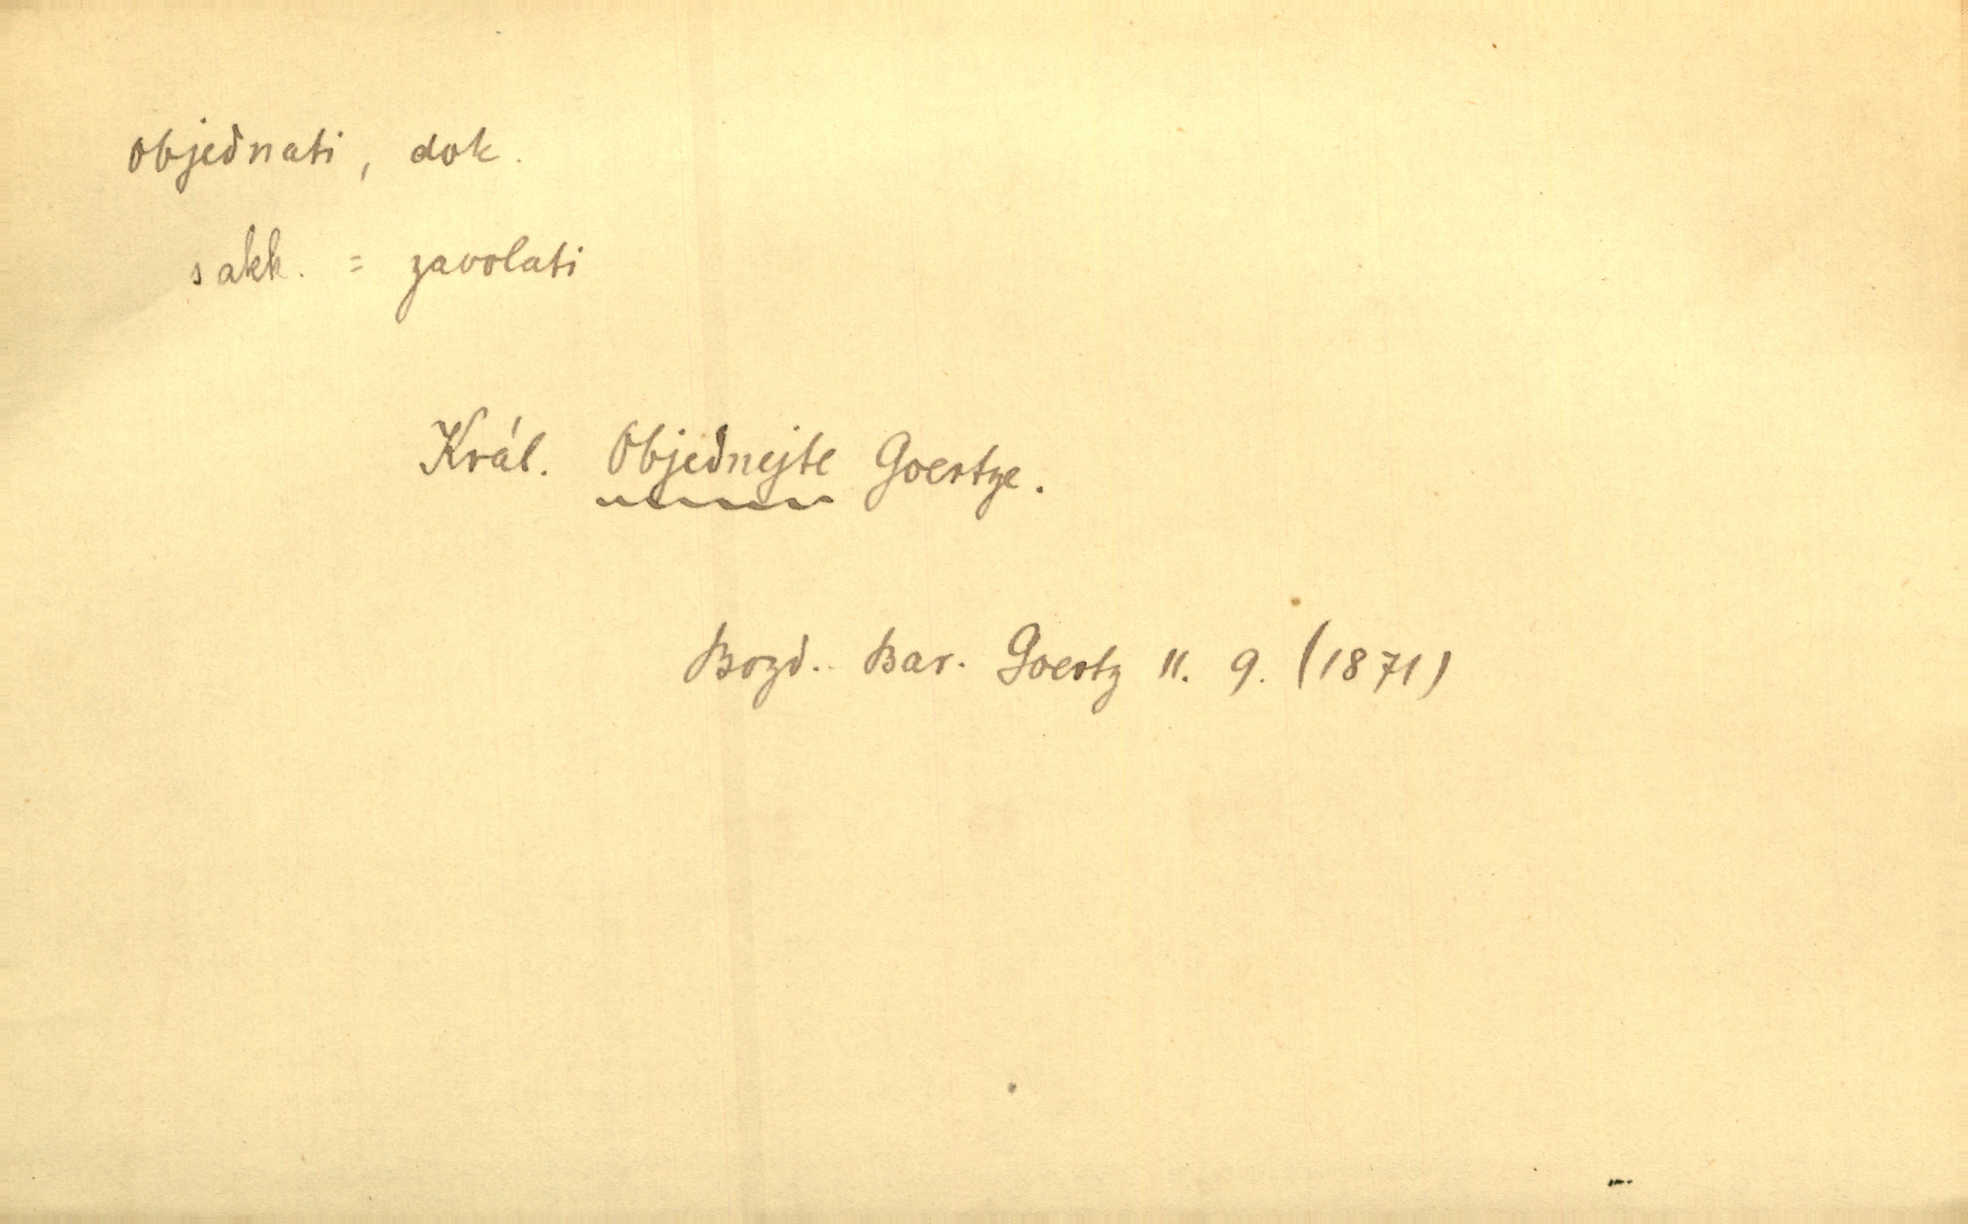 objednati, dok.
s akk. = zavolati
Král. Objednejte Goertze.
Bozd. Bar. Goertz II. 9. (1871)